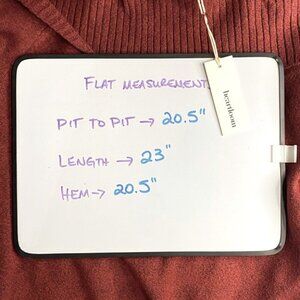 FLAT MEASUREMENTS
PIT TO PIT → 20.5"
LENGTH → 23"
HEM → 20.5"
heartloom